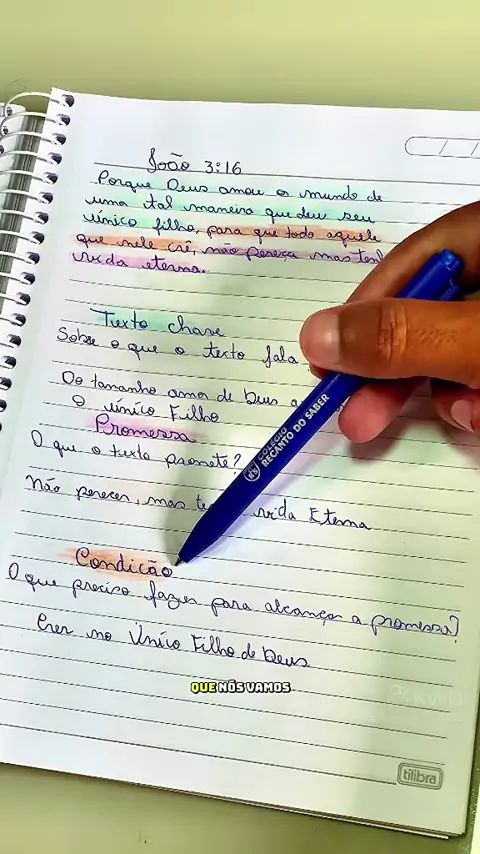 João 3:16
Porque Deus amou o mundo de
uma tal maneira que deu seu
único filho, para que todo aquele
que nele crê, não pereça mas
vida eterna.
Texto chave
Sobre o que o texto fala
Do tamanho amor de Deus
O único Filho
Promessa
O que o texto promete?
Não perecer, mas vida Eterna
Condição
O que preciso fazer para alcançar a promessa?
Crer no Único Filho de Deus
COLÉGIO
RECANTO DO SABER
QUE NÓS VAMOS
kwai
tilibra